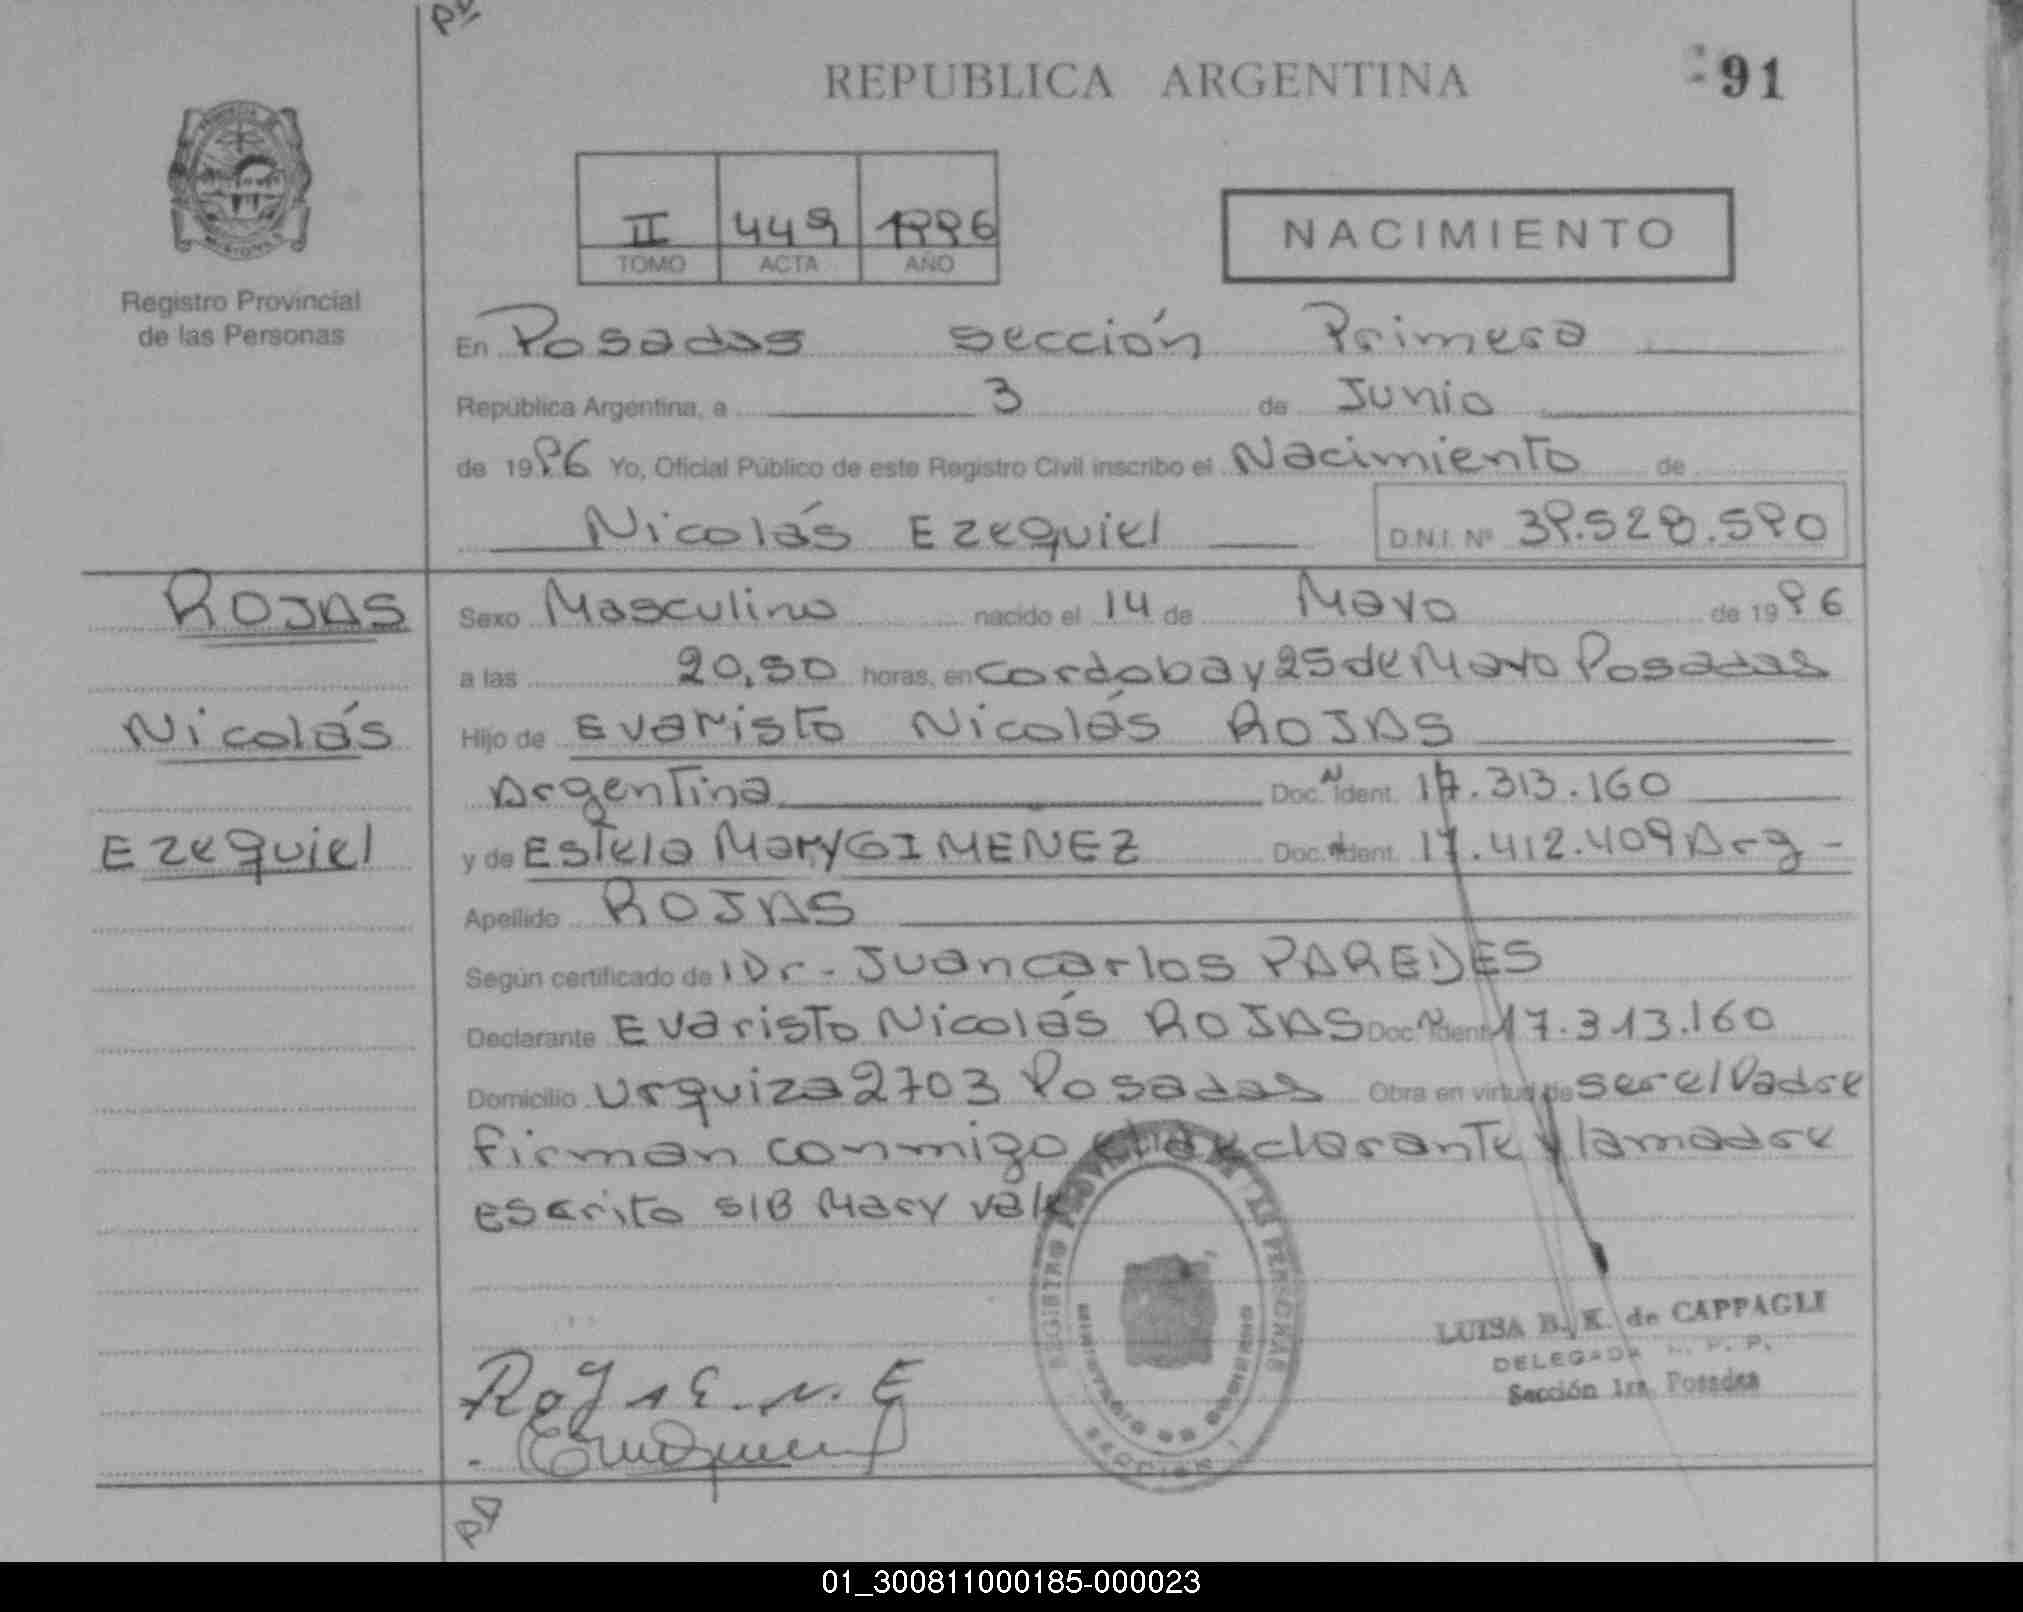 REPUBLICA ARGENTINA
91
II 449 1996
TOMO ACTA AÑO
NACIMIENTO
Registro Provincial
de las Personas
En Posadas sección Primera
República Argentina, a 3 de Junio
de 1996 Yo, Oficial Público de este Registro Civil inscribo el Nacimiento de
Nicolás Ezequiel D.N.I. Nº 39.528.590
ROJAS
Nicolás
Ezequiel
Sexo Masculino nacido el 14 de Mayo de 1996
a las 20,50 horas, en Cordoba y 25 de Mayo Posadas
Hijo de Evaristo Nicolás ROJAS
Argentina Doc. Ident. 17.313.160
y de Estela Mary GIMENEZ Doc. Ident. 17.412.409 Arg -
Apellido ROJAS
Según certificado de Dr - Juan carlos PAREDES
Declarante Evaristo Nicolás ROJAS Doc. Ident 17.313.160
Domicilio Urquiza 2703 Posadas Obra en virtud de ser el Padre
firman conmigo el declarante y la madre
escrito S/B Mary vale
REGISTRO PROVINCIAL DE LAS PERSONAS
MINISTERIO DE GOBIERNO
SECCION 1
LUISA B. K. de CAPPAGLI
DELEGADA R. P. P.
Sección 1ra. Posadas
01_300811000185-000023